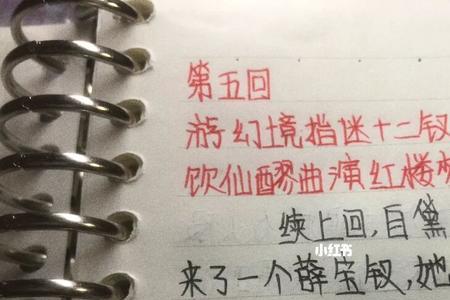 第五回
游幻境指迷十二钗
饮仙醪曲演红楼梦
续上回,自黛
小红书
来了一个薛宝钗,她